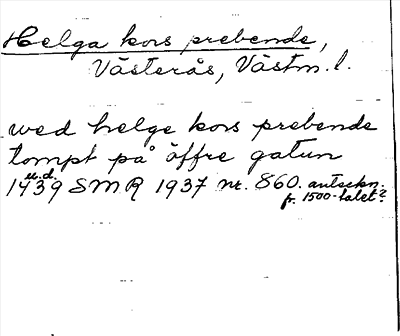 Helga kors prebende,
Västerås, Västm. l.
wed helge kors prebende
tompt på öffre gatun
u.d.
1439 SMR 1937 nr. 860. antekn.
fr. 1500-talet?